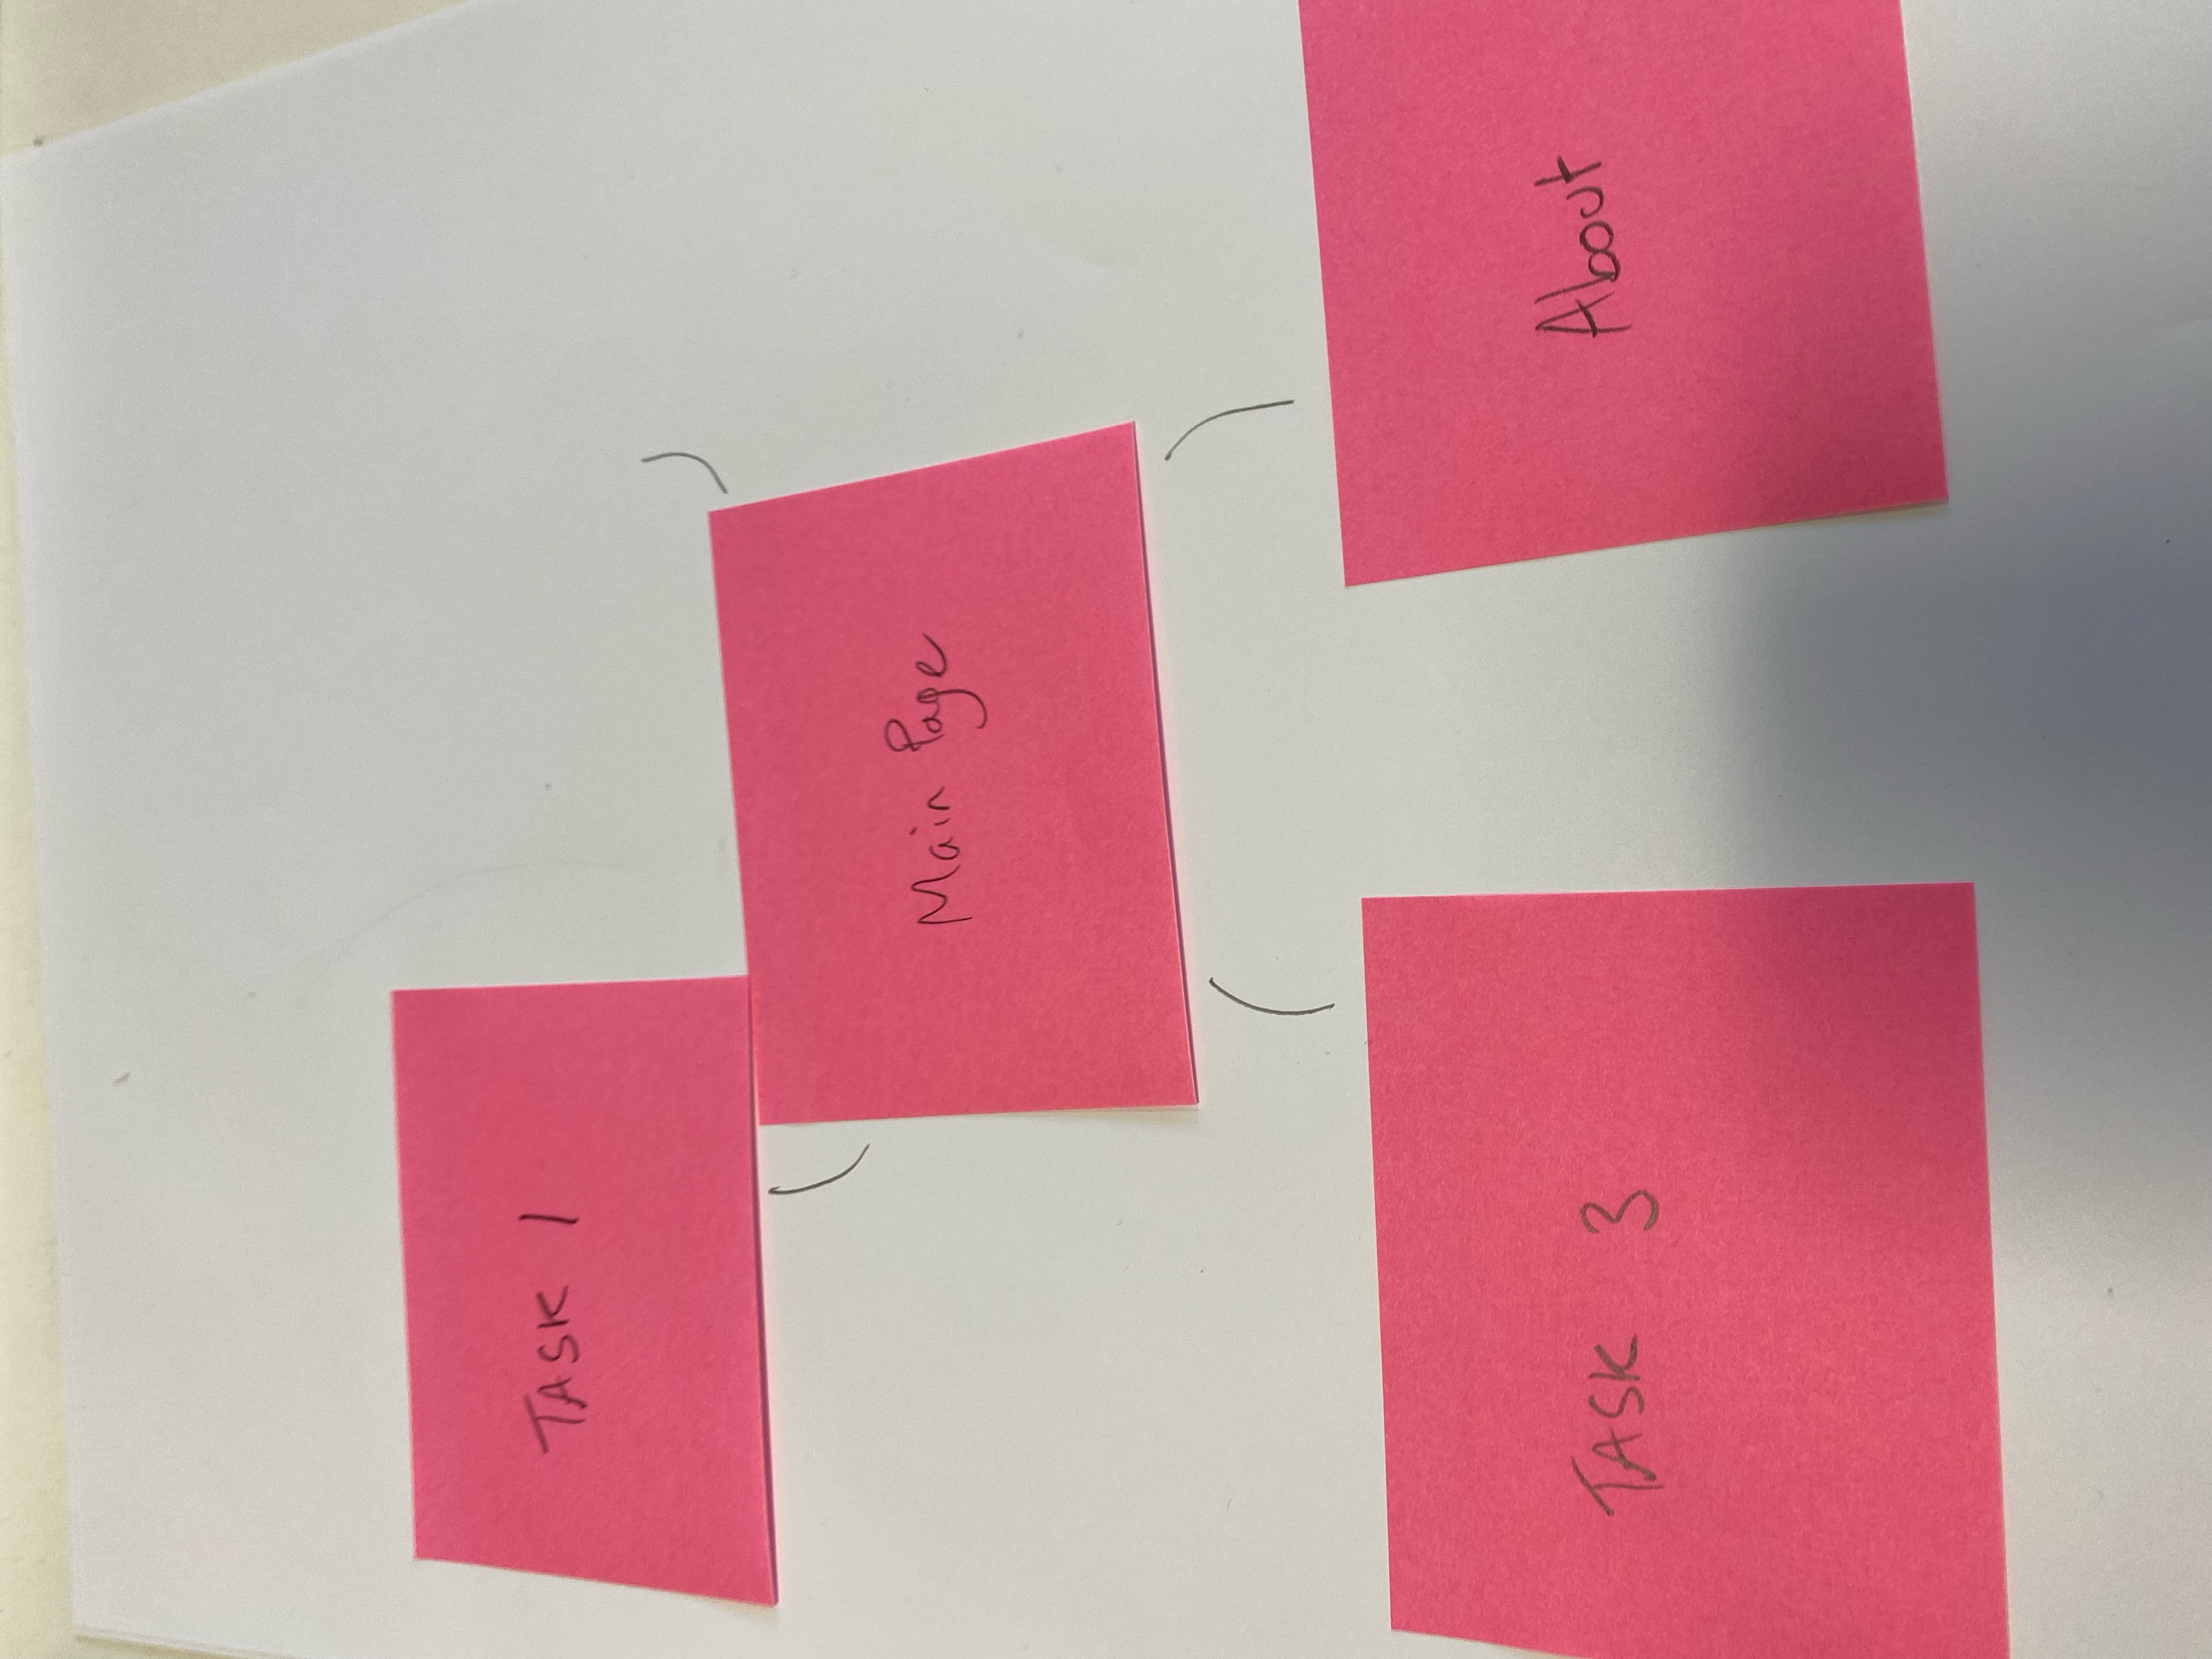 TASK 1
Main Page
TASK 3
About